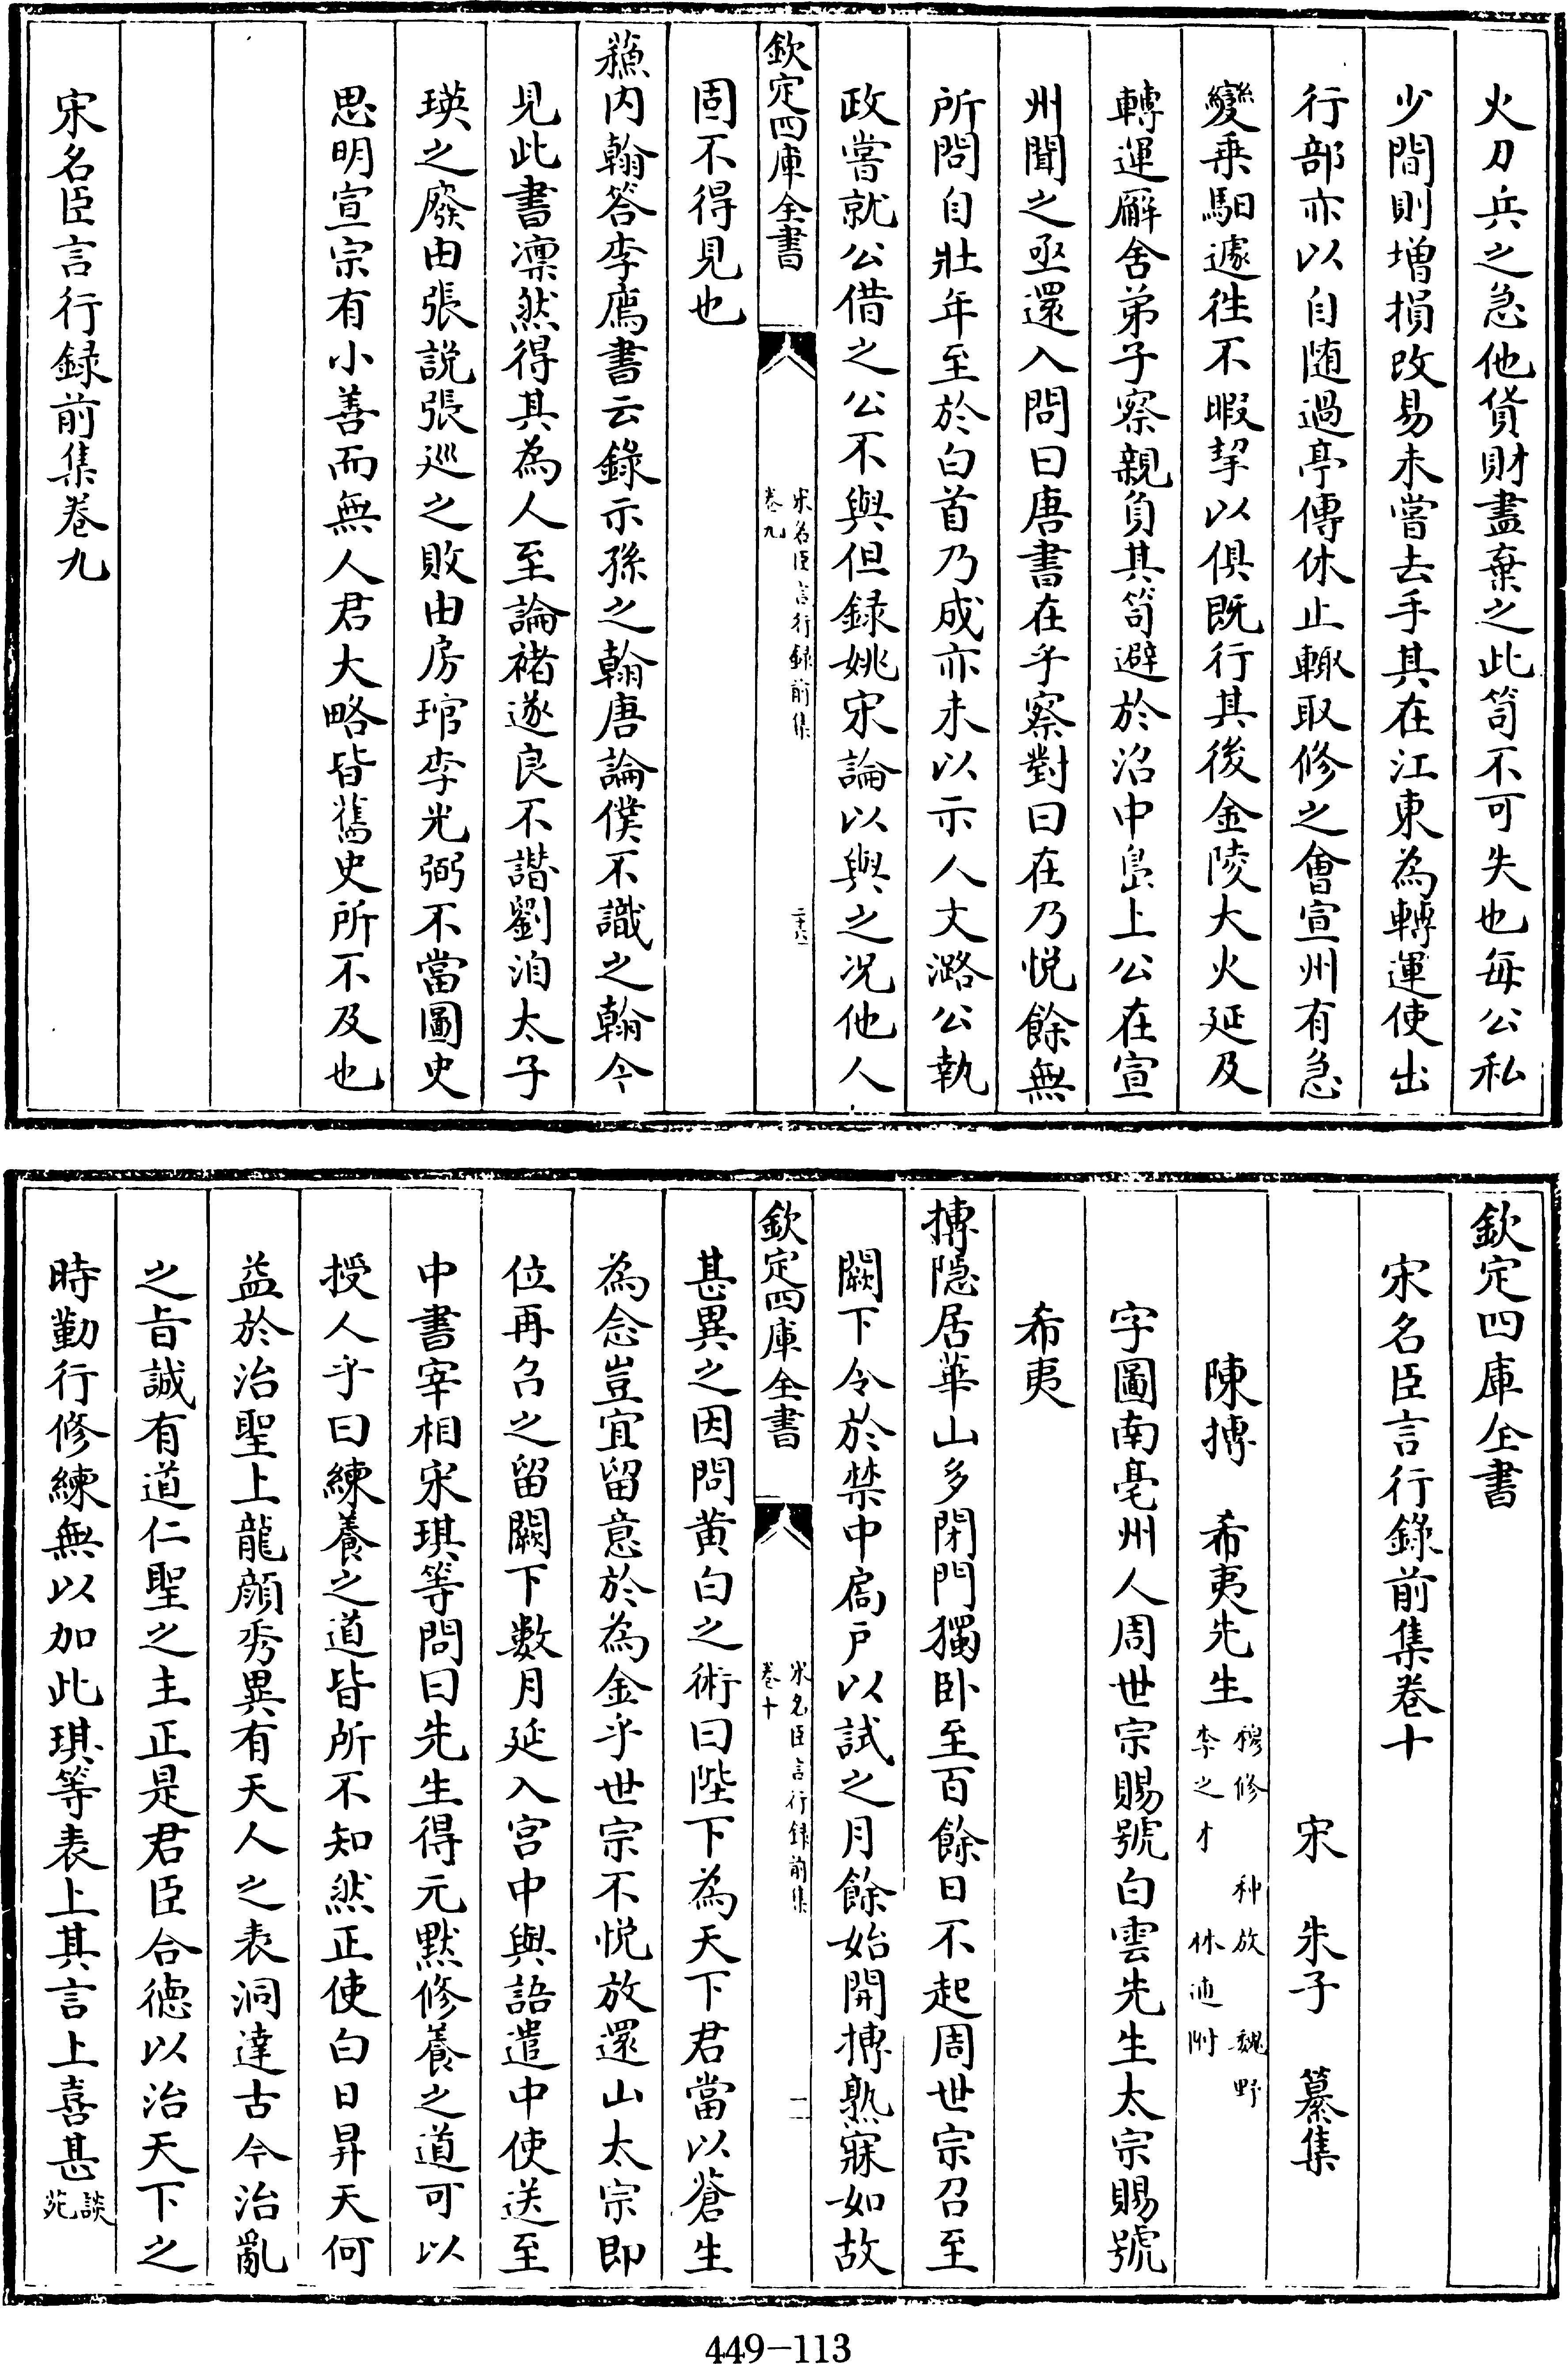 火刀兵之急他貨財盡棄之此笥不可失也每公私
少間則增損改易未嘗去手其在江東為轉運使出
行部亦以自随過亭傳休止輙取修之會宣州有急
變乗馹遽徃不暇挈以俱既行其後金陵大火延及
轉運廨舍弟子察親負其笥避於沼中島上公在宣
州聞之亟還入問曰唐書在乎察對曰在乃悦餘無
所問自壯年至於白首乃成亦未以示人文潞公執
政嘗就公借之公不與但録姚宋論以與之况他人
欽定四庫全書
宋名臣言行録前集
卷九
二十六
固不得見也
蘓内翰答李廌書云錄示孫之翰唐論僕不識之翰今
見此書凛然得其為人至論褚遂良不譖劉洎太子
瑛之廢由張説張巡之敗由房琯李光弼不當圖史
思明宣宗有小善而無人君大略皆舊史所不及也
宋名臣言行録前集卷九
欽定四庫全書
宋名臣言行錄前集卷十
宋 朱子 纂集
陳摶 希夷先生 穆修 种放 魏野
李之才 林逋附
字圖南亳州人周世宗賜號白雲先生太宗賜號
希夷
摶隠居華山多閉門獨卧至百餘日不起周世宗召至
闕下令於禁中扃戶以試之月餘始開摶熟寐如故
欽定四庫全書
宋名臣言行録前集
卷十
一
甚異之因問黄白之術曰陛下為天下君當以蒼生
為念豈宜留意於為金乎世宗不悦放還山太宗即
位再召之留闕下數月延入宫中與語遣中使送至
中書宰相宋琪等問曰先生得元默修養之道可以
授人乎曰練養之道皆所不知然正使白日昇天何
益於治聖上龍顔秀異有天人之表洞達古今治亂
之旨誠有道仁聖之主正是君臣合德以治天下之
時勤行修練無以加此琪等表上其言上喜甚談苑
449-113